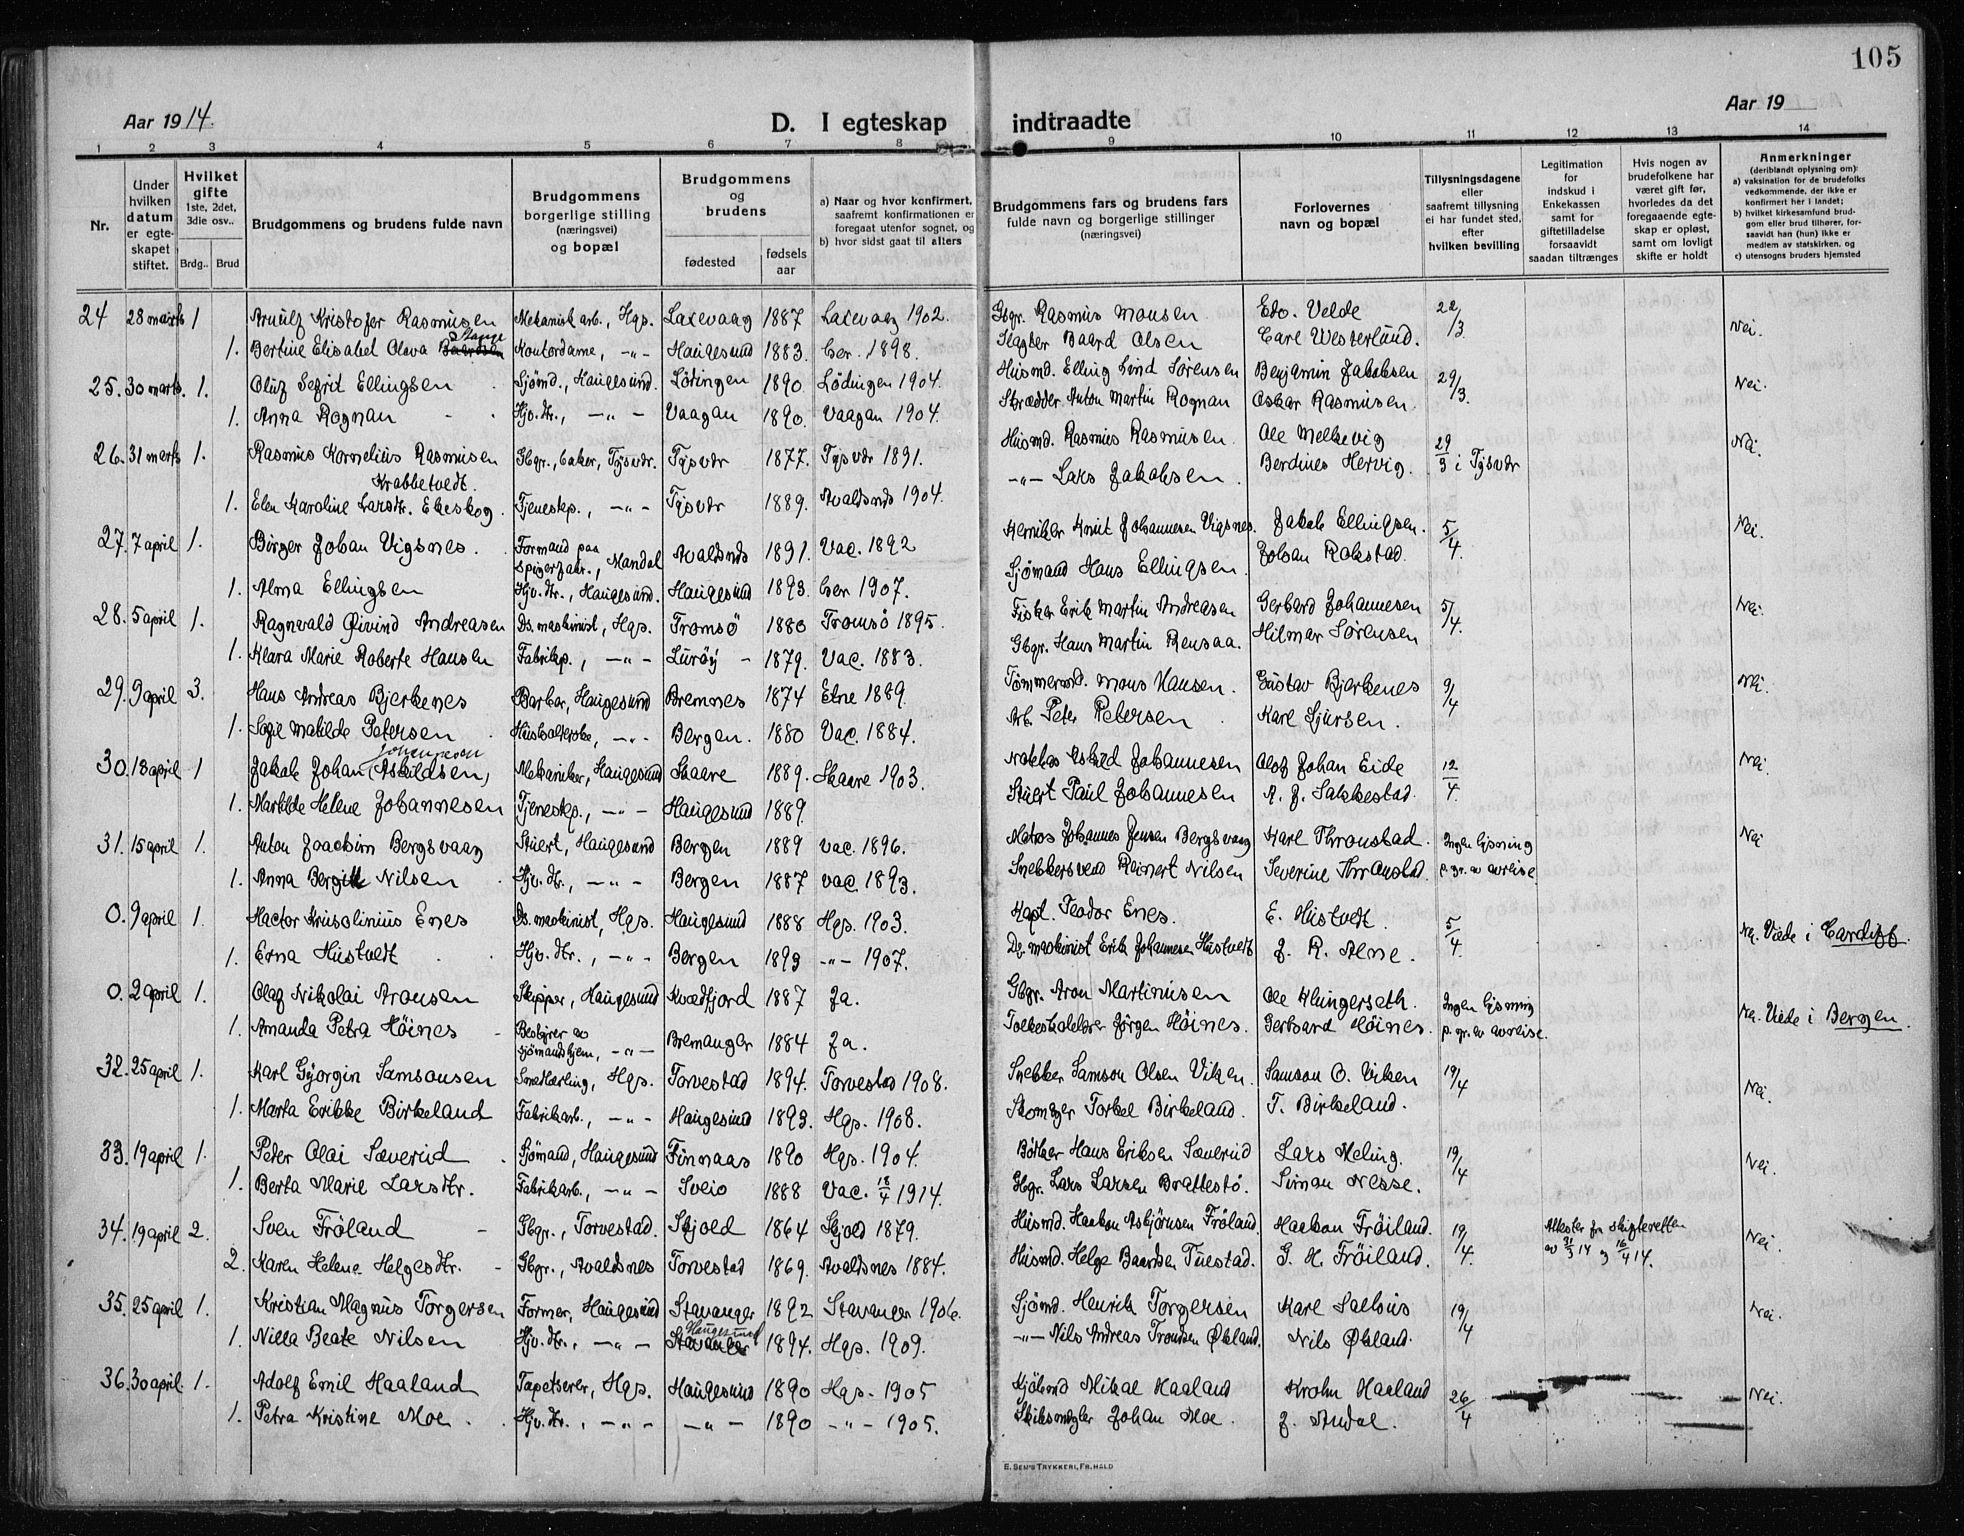 105
Aar 1914.
D. I egteskap indtraadte
Aar 19
1 2 3 4 5 6 7 8 9 10 11 12 13 14
Nr.
Under hvilken datum er egteskapet stiftet.
Hvilket gifte 1ste, 2det, 3die osv..
Brdg.. Brud
Brudgommens og brudens fulde navn
Brudgommens borgerlige stilling (næringsvei) og bopæl
Brudgommens og brudens
fødested
fødsels aar
a) Naar og hvor konfirmert, saafremt konfirmationen er foregaat utenfor sognet, og
b) hvor sidst gaat til alters
Brudgommens fars og brudens fars fulde navn og borgerlige stillinger (næringsvei)
Forlovernes navn og bopæl
Tillysningsdagene eller saafremt tillysning ei har fundet sted, efter hvilken bevilling
Legitimation for indskud i Enkekassen samt for giftetilladelse forsaavidt saadan tiltrænges
Hvis nogen av brudefolkene har været gift før, hvorledes da det foregaaende egteskap er opløst, samt om lovligt skifte er holdt
Anmerkninger (deriblandt oplysning om): a) vaksination for de brudefolks vedkommende, der ikke er konfirmert her i landet; b) hvilket kirkesamfund brudgom eller brud tilhører, forsaavidt han (hun) ikke er medlem av statskirken, og c) utensogns bruders hjemsted
24 28 marts 1 Arnulf Kristofer Rasmusen Mekanisk arb., Hgs. Laxevaag 1887 Laxevaag 1902. Gbgr. Rasmus Monsen Edv. Velde 22/3 Nei.
1. Bertine Elisabet Olava Stange Kontordame, -"- Haugesund 1883. her. 1898. Slagter Baard Olsen Carl Westerlund.
25. 30 marts. 1. Oluf Sefrit Ellingsen Sjømd., Haugesund. Lödingen 1890. Lödingen 1904. Husmd. Elling Lind Sørensen Benjamin Jakobsen 29/3. Nei.
1. Anna Rognan Hjv. dtr., -"- Vaagan 1890. Vaagan 1904. Skrædder Anton Martin Rognan Oskar Rasmusen.
26. 31 marts 1. Rasmus Kornelius Rasmusen Gbgr., baker, Tysvær. Tysvær 1877. Tysvær 1891. Husmd. Rasmus Rasmusen. Ole Melkevig 29/3 i Tysvær Nei.
Krabbetvedt.
1. Elen Karoline Larsdtr. Ekeskog. Tjenestep., -"- Tysvær 1889. Avaldsnes 1904. -"- Lars Jakobsen. Berdines Hervig.
27. 7 april 1. Birger Johan Vigsnes. Formand paa spigerfabr., Mandal Avaldsnes 1891. Vac. 1892 Kemiker Knut Johannesen Vigsnes. Jakob Ellingsen. 5/4. Nei.
1. Alma Ellingsen Hjv. dtr., Haugesund. Haugesund 1893. her 1907. Sjømand Hans Ellingsen. Johan Rokstad.
28. 5 april 1. Ragnvald Øivind Andreasen Ds. maskinist, Hgs. Tromsö 1880 Tromsö 1895. Fisker Erik Martin Andreasen Gerhard Johannesen 5/4. Nei.
1. Klara Marie Roberte Hansen Fabrikp., -"- Luröy 1879. Vac. 1883. Gbgr. Hans Martin Rensaa. Hilmar Sørensen
29. 9 april 3. Hans Andreas Bjerkenes Barber, Haugesund Bremnes 1874 Etne 1889. Tømmermd. Mons Hansen. Gustav Bjerkenes 9/4 Nei.
1. Sofie Matilde Petersen Husholderske, -"- Bergen. 1880 Vac. 1884. Arb. Peter Petersen Karl Sjursen.
30. 13 april 1 Jakob Johan (Askildsen) Johannesen Mekaniker, Haugesund Skaare 1889. Skaare 1903. Askild Johannesen Olof Johan Eide 12/4. Nei.
1. Martilde Helene Johannesen Tjenestep., -"- Haugesund 1889. Stuert Paul Johannesen A. J. Sakkestad.
31. 15 april 1. Anton Joachim Bergsvaag Stuert, Haugesund Bergen 1889 vac. 1896. Matros Johannes Jensen Bergsvaag Karl Thronstad. Ingen lysning Nei
1. Anna Bergitt Nilsen Hjv. dtr., -"- Bergen 1887 vac. 1893. Snekkersvend Reinert Nilsen Severine Thronstad. p. gr. av avreise.
0. 9 april 1. Hactor Krusolinius Enes Ds. maskinist, Hgs. Haugesund 1888 Hgs. 1903. Kapt. Teodor Enes. E. Hustvedt. 5/4. Nei. Viede i Cardiff.
1. Erna Hustvedt Hjv. dtr., -"- Bergen 1893 -"- 1907. Ds. maskinist Erik Johannesen Hustvedt J. R. Alne.
0. 2 april 1. Olaf Nikolai Aronsen Skipper, Haugesund Kvædfjord 1887 Ja. Gbgr. Aron Martinusen Ole Klungerseth. Ingen lysning Nei. Viede i Bergen.
1. Amanda Petra Höines Bestyrer av sjømandshjem, -"- Bremanger 1884 Ja. Jørgen Höines. Gerhard Höines. p. gr. av avreise.
32. 25 april 1. Karl Györgin Samsonsen Smedlærling, Hgs. Torvestad 1894. Torvestad 1908. Snekker Samson Olsen Viken. Samson O. Viken 19/4 Nei.
1. Marta Erikke Birkeland Fabrikarb., -"- Haugesund 1893. Hgs. 1908. Torkel Birkeland. T. Birkeland.
33. 19 april 1. Peter Olai Sæverud Sjömand, Haugesund Finnaas 1890 Hgs. 1904. Bötker Hans Eriksen Sæverud Lars Meling. 19/4 Nei.
1. Berta Marie Larsdtr. Fabrikarb., -"- Sveio 1888 Vac. 18/4 1914. Gbgr. Lars Larsen Brattestö. Simon Nesse.
34. 19 april 2. Sven Fröland Gbgr., Torvestad. Skjold 1864 Skjold 1879. Husmd. Haakon Asbjörnsen Fröland. Haakon Fröiland. 19/4. Attester fra skifteretten av 31/3 14 og 16/4 14. Nei.
2. Karen Helene Helgesdtr. Gbgr., Avaldsnes Torvestad 1869. Avaldsnes 1884. Husmd. Helge Baardsen Tuestad. G. H. Fröiland.
35. 25 april 1. Kristian Magnus Torgersen Former, Haugesund Stavanger 1892 Stavanger 1906. Sjömd. Henrik Torgersen Karl Saltvis 19/4 Nei.
1. Nilla Beate Nilsen Hjv. dtr., -"- Haugesund Stavanger 1894. Hgs. 1909. -"- Nils Andreas Trondsen Økland. Nils Økland.
36. 30 april. 1. Adolf Emil Haaland Tapetserer, Hgs. Haugesund 1890 Hgs. 1905 Kjöbmd Mikal Haaland Krohn Haaland 26/4 Nei.
1. Petra Kristine Moe. Hjv. dtr., -"- -"- 1890 -"- 1905. Skibsmægler Johan Moe. J. Andal.
E. SEM'S TRYKKERI, FR. HALD